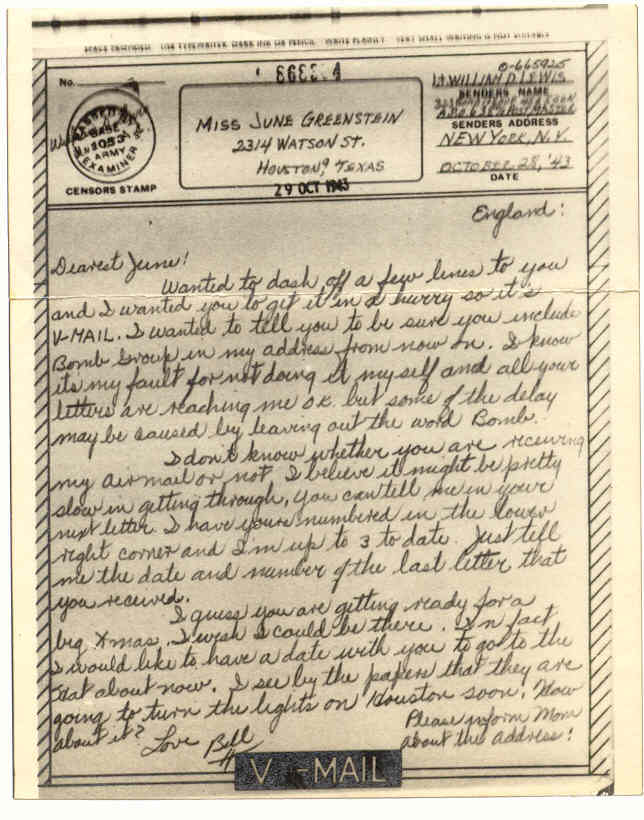 No.
668224
O-665925
Lt. WILLIAM D. LEWIS
SENDERS NAME
SENDERS ADDRESS
NEW YORK, N.Y.
OCTOBER 28, '43
DATE
BASE
ARMY
EXAMINER
CENSORS STAMP
MISS JUNE GREENSTEIN
2314 WATSON ST.
HOUSTON 9, TEXAS
29 OCT 1943
England:
Dearest June!
Wanted to dash off a few lines to you
and I wanted you to get it in a hurry so it's
V-MAIL. I wanted to tell you to be sure you include
Bomb Group in my address from now on. I know
its my fault for not doing it my self and all your
letters are reaching me O.K. but some of the delay
may be caused by leaving out the word Bomb.
I don't know whether you are receiving
my air mail or not. I believe it might be pretty
slow in getting through, you can tell me in your
next letter. I have yours numbered in the lower
right corner and I'm up to 3 to date. Just tell
me the date and number of the last letter that
you received.
I guess you are getting ready for a
big Xmas. I wish I could be there. In fact
I would like to have a date with you to go to the
about now. I see by the papers that they are
going to turn the lights on Houston soon. How
about it? Love Bill
Please inform Mom
about the address!
V-MAIL